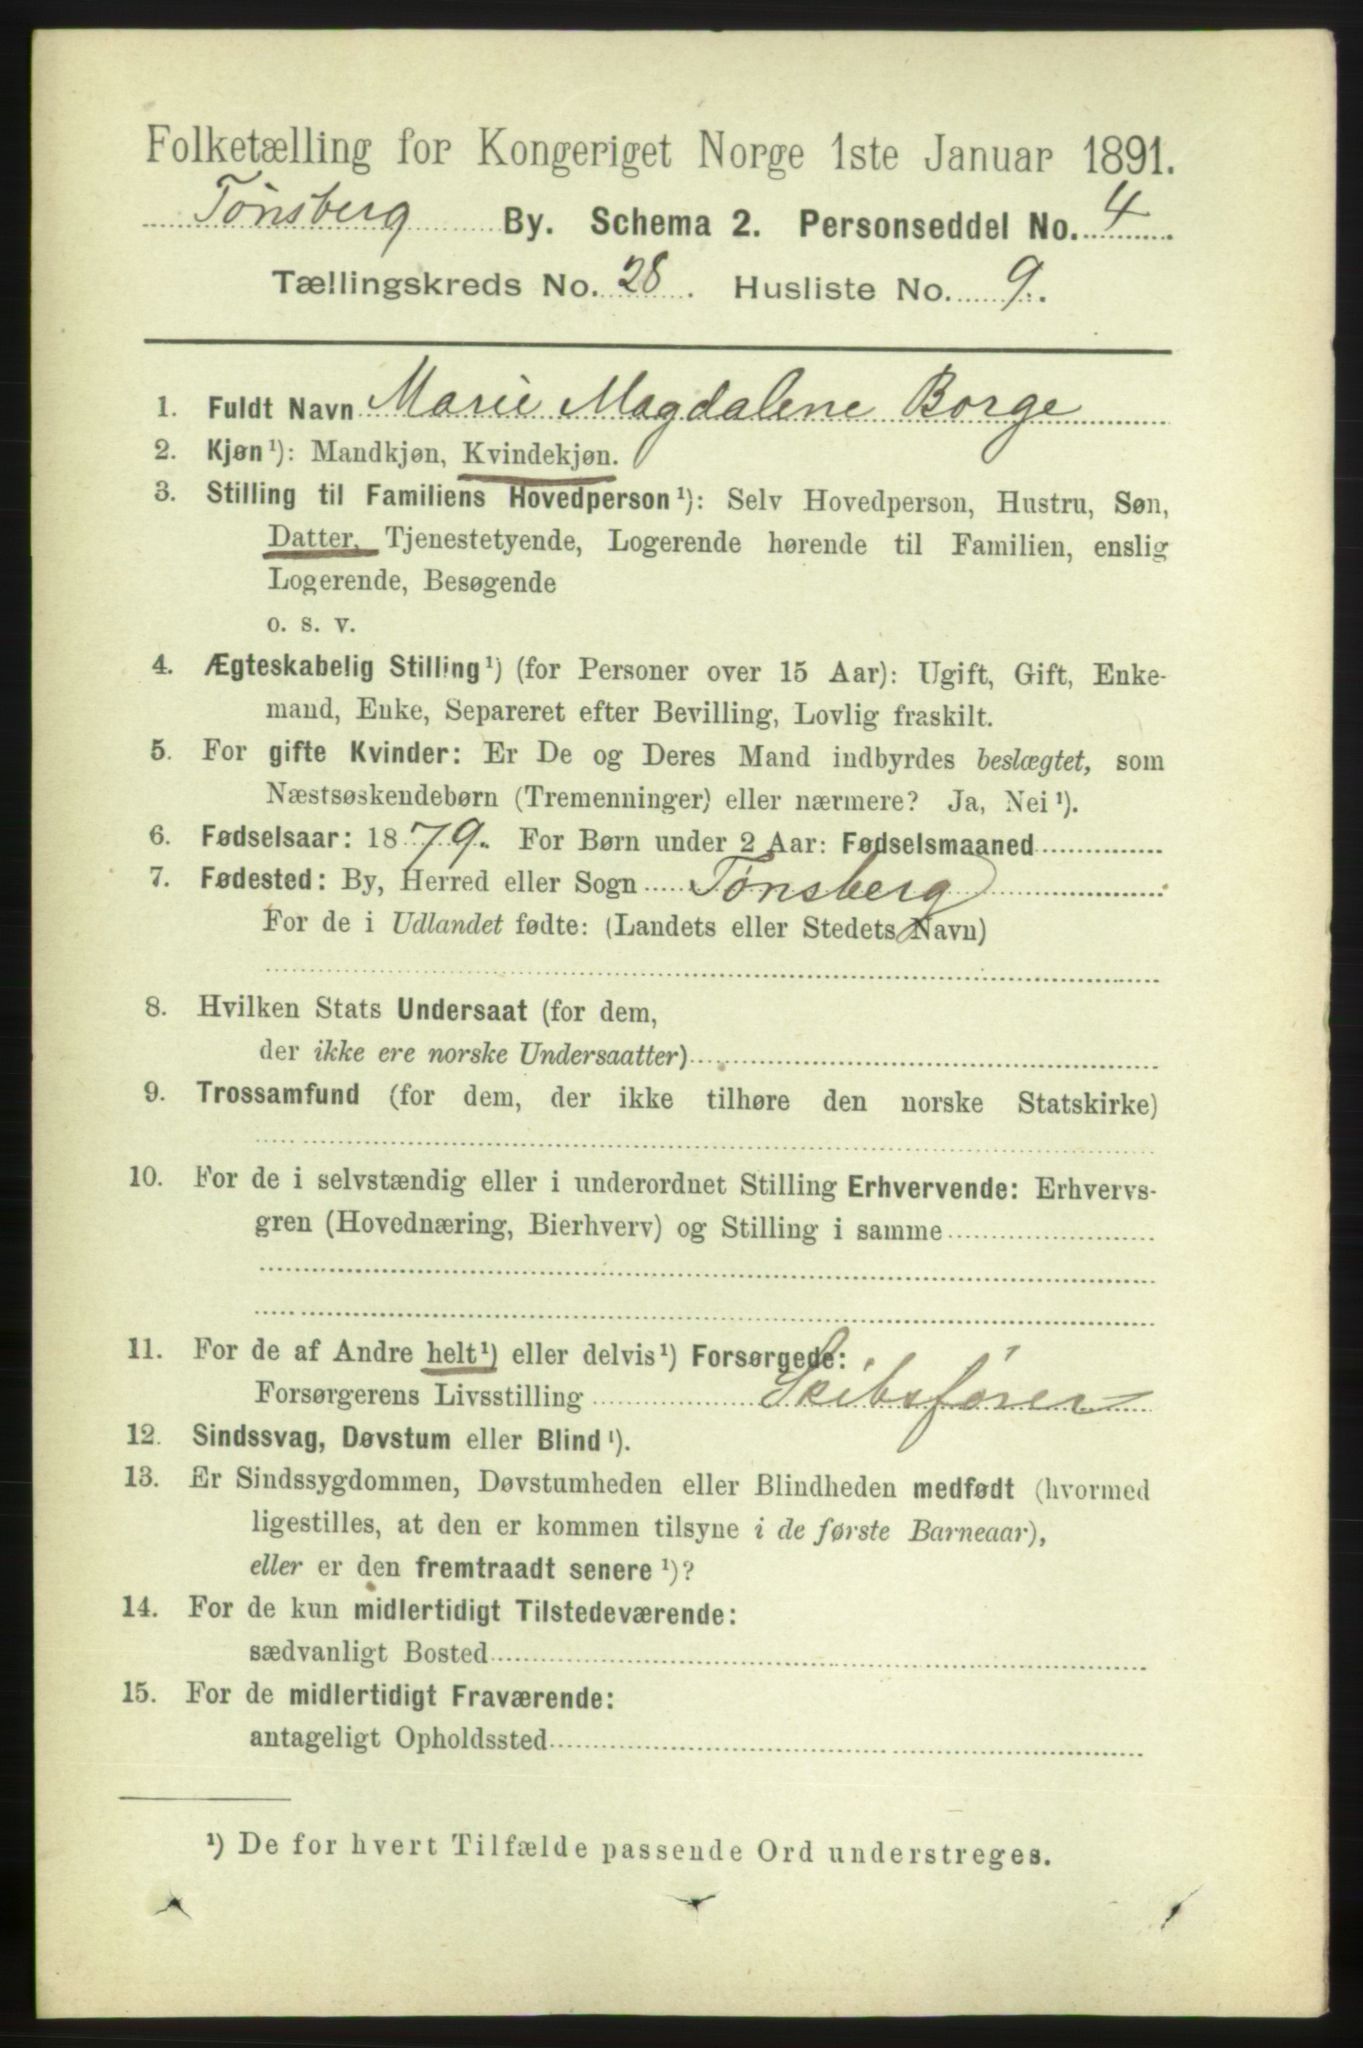 Folketælling for Kongeriget Norge 1ste Januar 1891.
Tønsberg By. Schema 2. Personseddel No. 4.
Tællingskreds No. 28. Husliste No. 9.
1. Fuldt Navn Marie Magdalene Borge
2. Kjøn¹): Mandkjøn, Kvindekjøn.
3. Stilling til Familiens Hovedperson¹): Selv Hovedperson, Hustru, Søn,
Datter, Tjenestetyende, Logerende hørende til Familien, enslig
Logerende, Besøgende
o. s. v.
4. Ægteskabelig Stilling¹) (for Personer over 15 Aar): Ugift, Gift, Enke-
mand, Enke, Separeret efter Bevilling, Lovlig fraskilt.
5. For gifte Kvinder: Er De og Deres Mand indbyrdes beslægtet, som
Næstsøskendebørn (Tremenninger) eller nærmere? Ja, Nei¹).
6. Fødselsaar: 1879. For Børn under 2 Aar: Fødselsmaaned
7. Fødested: By, Herred eller Sogn Tønsberg
For de i Udlandet fødte: (Landets eller Stedets Navn)
8. Hvilken Stats Undersaat (for dem,
der ikke ere norske Undersaatter)
9. Trossamfund (for dem, der ikke tilhøre den norske Statskirke)
10. For de i selvstændig eller i underordnet Stilling Erhvervende: Erhvervs-
gren (Hovednæring, Bierhverv) og Stilling i samme
11. For de af Andre helt¹) eller delvis¹) Forsørgede:
Forsørgerens Livsstilling Skibsfører
12. Sindssvag, Døvstum eller Blind¹).
13. Er Sindssygdommen, Døvstumheden eller Blindheden medfødt (hvormed
ligestilles, at den er kommen tilsyne i de første Barneaar),
eller er den fremtraadt senere¹)?
14. For de kun midlertidigt Tilstedeværende:
sædvanligt Bosted
15. For de midlertidigt Fraværende:
antageligt Opholdssted
¹) De for hvert Tilfælde passende Ord understreges.